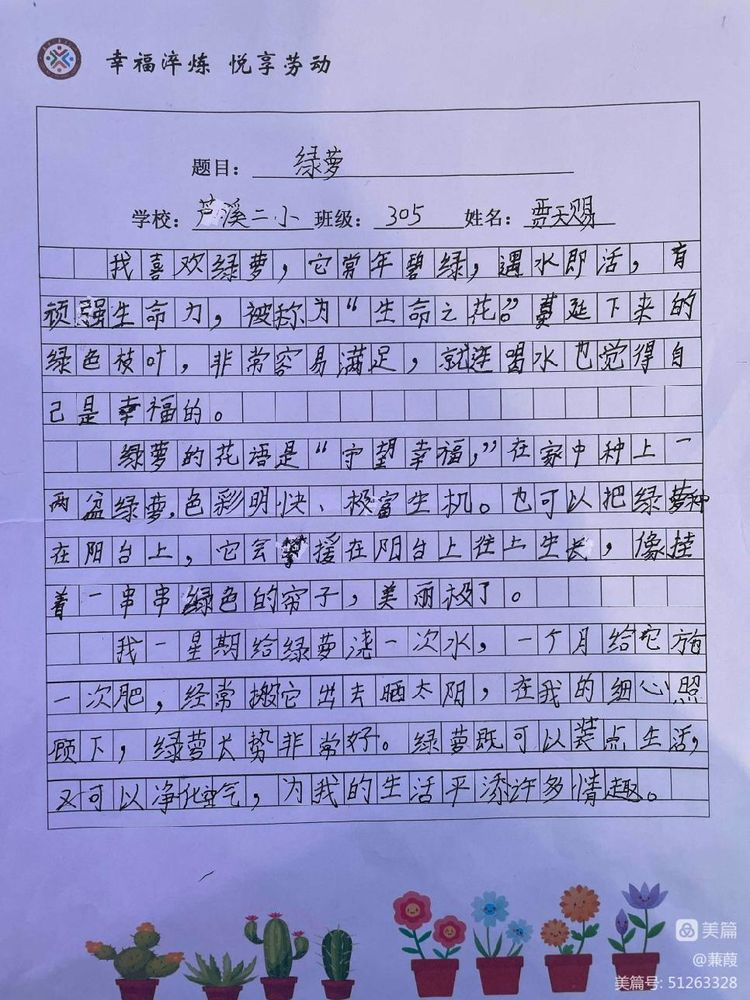 幸福淬炼 悦享劳动
题目：绿萝
学校：芦溪二小 班级：305 姓名：贾天赐
我喜欢绿萝，它常年碧绿，遇水即活，有
顽强生命力，被称为“生命之花”。蔓延下来的
绿色枝叶，非常容易满足，就连喝水也觉得自
己是幸福的。
绿萝的花语是“守望幸福，”在家中种上一
两盆绿萝，色彩明快、极富生机。也可以把绿萝种
在阳台上，它会攀援在阳台上往上生长，像挂
着一串串绿色的帘子，美丽极了。
我一星期给绿萝浇一次水，一个月给它施
一次肥，经常搬它出去晒太阳，在我的细心照
顾下，绿萝长势非常好。绿萝既可以装点生活，
又可以净化空气，为我的生活平添许多情趣。
美篇
@蒹葭
美篇号: 51263328